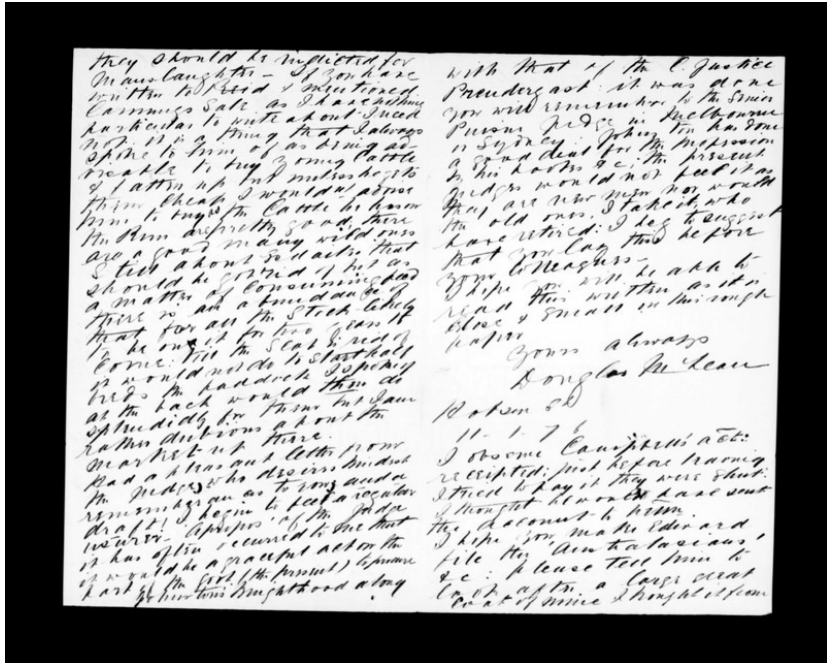 they should be indicted for
Manslaughter — If you have
written to Reid & mentioned
Cannings Sale as I have nothing
particular to write about I need
not. It is a thing that I always
spoke to him of as being ad-
visable to buy young Cattle
& fatten up but unless he gets
them Cheap I would advise
him to buy the Cattle he know
the Run are pretty good, there
are a good many wild ones
still about that
should be got rid of but as
a matter of Consuming feed
there is an abundance of
that for all the Stock likely
to be on it for two years to
Come.
it would not do to start half
breds the paddocks
at the back would them do
splendidly for them but I am
rather dubious about the
market up there.
Had a pleasant letter from
the Judge who desires kindest
remembrances to you and a
draft! I begin to feel a regular
usurer. Apropos of the Judge
it has often occurred to me that
it would be a graceful act on the
part of the Govt (the present) to procure
Johnston's Knighthood along
with that of the C. Justice
Prendergast: it was done
you will remember to the Senior
Puisne Judge in Melbourne
or Sydney. Johnston has done
a good deal for the profession
in his books &c; the present
judges would not feel it as
they are new men nor would
the old ones, I take it, who
have retired: I beg to suggest
that you lay this before
your Colleagues —
I hope you will be able to
read this written as it is
else & on this rough
paper
Yours always
Douglas McLean
Hobson St
11. 1. 76
I observe Campbell's acct:
receipted: just before leaving
I tried to pay it they were shut:
I thought he would have sent
the account to him.
I hope you make Edward
file the "Australasians,"
&c: please tell him to
look after a large great
coat of mine I bought it from